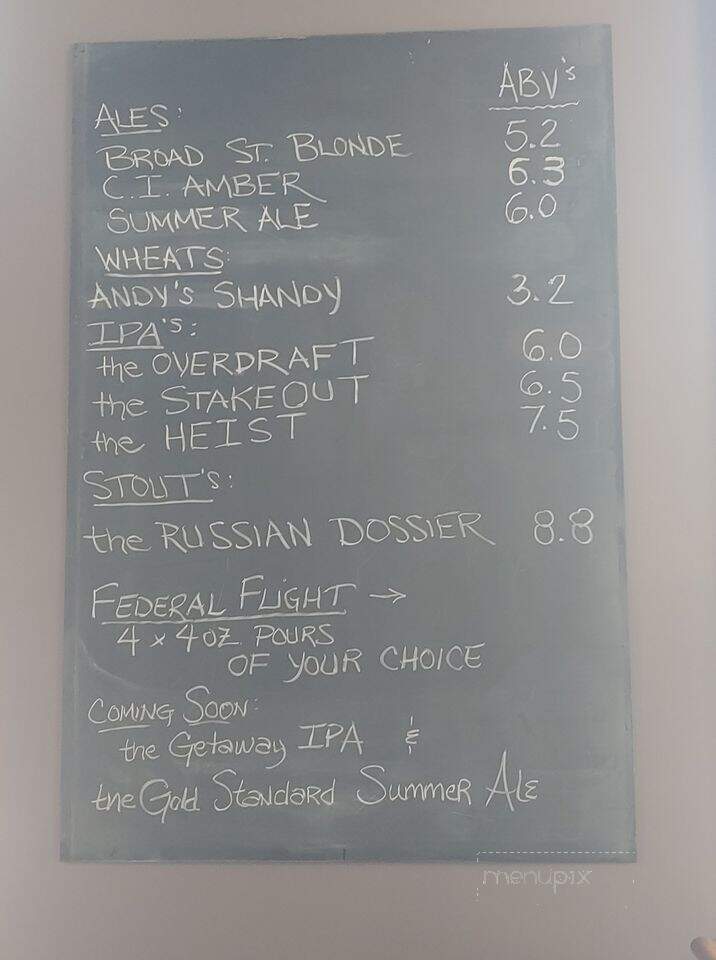 ABV's
ALES:
BROAD ST. BLONDE 5.2
C.I. AMBER 6.3
SUMMER ALE 6.0
WHEATS:
ANDY'S SHANDY 3.2
IPA'S:
the OVERDRAFT 6.0
the STAKEOUT 6.5
the HEIST 7.5
STOUT'S:
the RUSSIAN DOSSIER 8.8
FEDERAL FLIGHT →
4 x 4 OZ. POURS
OF YOUR CHOICE
COMING SOON:
the Getaway IPA &
the Gold Standard Summer Ale
menupix